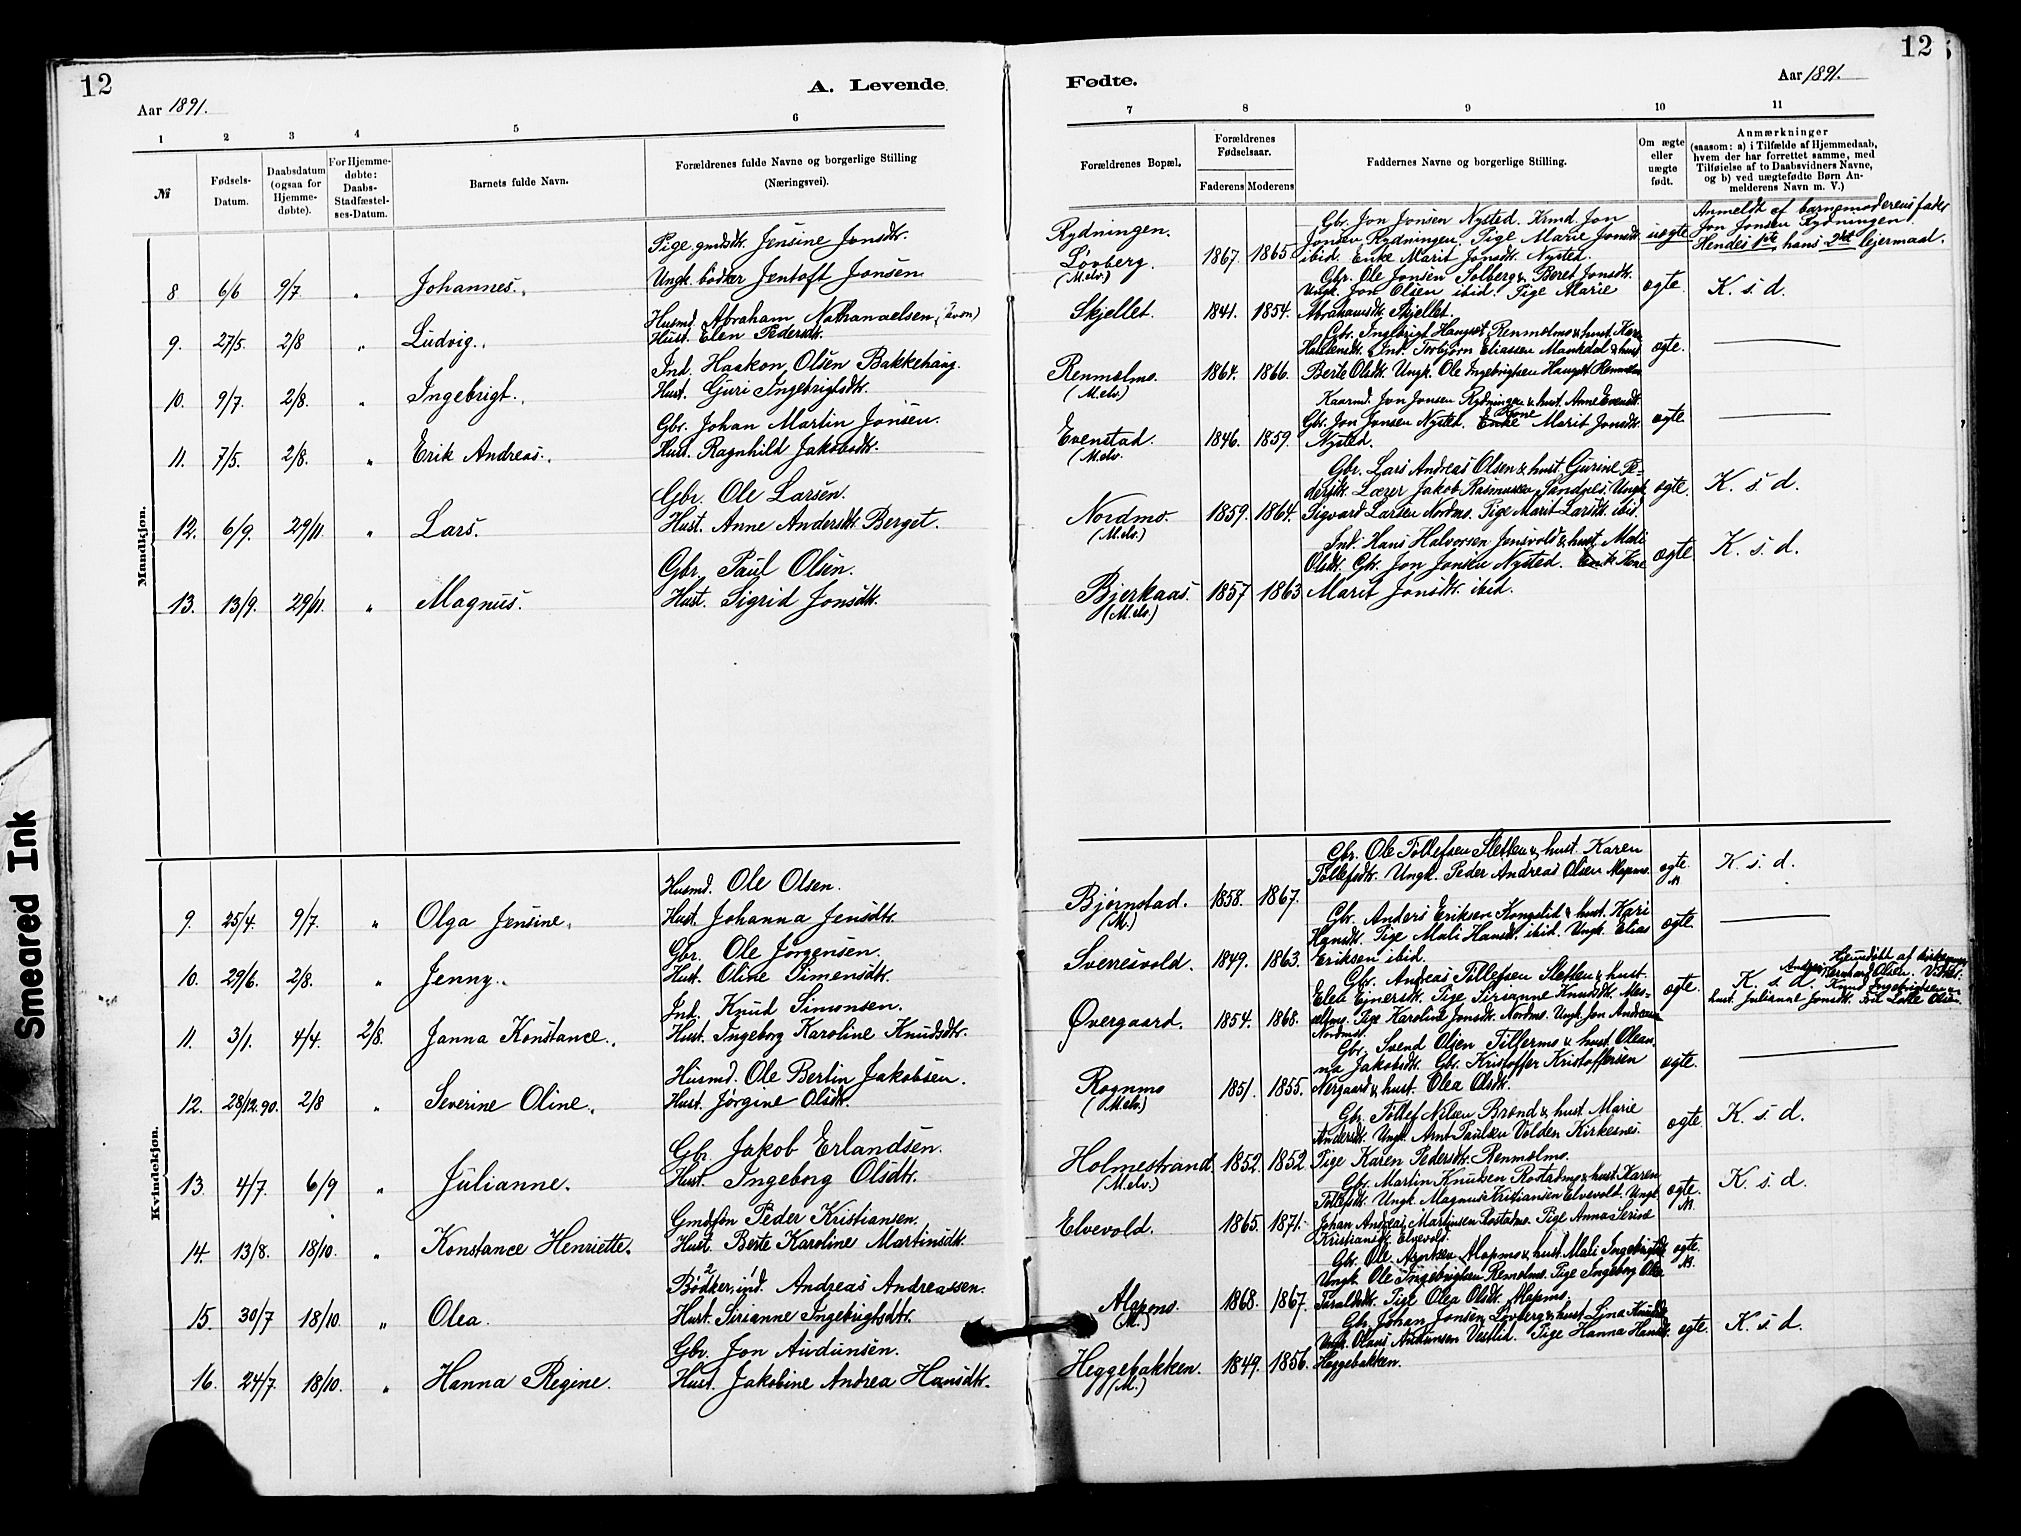 12
A. Levende
Aar 1891.
1 2 3 4 5 6
№
Fødsels-Datum.
Daabsdatum (ogsaa for Hjemme-døbte).
For Hjemme-døbte: Daabs-Stadfæstel-ses-Datum.
Barnets fulde Navn.
Forældrenes fulde Navne og borgerlige Stilling (Næringsvei).
Mandkjøn.
Pige gmdsdtr. Jensine Jonsdtr.
8 6/6 9/7 " Johannes. Ungk. bødker Jentoft Jonsen
Husmd. Abraham Nathanaelsen,
9. 27/5. 2/8 " Ludvig. Hust. Elen Pedersdtr.
Ind. Haakon Olsen Bakkehaug.
10. 9/7. 2/8. " Ingebrigt. Hust. Guri Ingebrigtsdtr.
Gbr. Johan Martin Jonsen.
11. 7/5. 2/8. " Erik Andreas. Hust. Ragnhild Jakobsdtr.
Gbr. Ole Larsen.
12. 6/9. 29/11. " Lars. Hust. Anne Andersdtr. Berget.
Gbr. Paul Olsen.
13. 13/9. 29/11. " Magnus. Hust. Sigrid Jonsdtr.
Kvindekjøn.
Husmd. Ole Olsen.
9. 25/4. 9/7. " Olga Jensine. Hust. Johanna Jensdtr.
Gbr. Ole Jørgensen.
10. 29/6. 2/8. " Jenny. Hust. Oline Simensdtr.
Ind. Knud Simonsen.
11. 3/1. 4/4. 2/8. Janna Konstance. Hust. Ingeborg Karoline Knudsdtr.
Husmd. Ole Bertin Jakobsen.
12. 28/12.90. 2/8 " Severine Oline. Hust. Jørgine Olsdtr.
Gbr. Jakob Erlandsen.
13. 4/7. 6/9 " Julianne. Hust. Ingeborg Olsdtr.
Gmdsøn Peder Kristiansen.
14. 13/8. 18/10. " Konstance Henriette. Hust. Berte Karoline Martinsdtr.
Bødker, ind. Andreas Andreassen.
15. 30/7 18/10. " Olea. Hust. Sirianne Ingebrigtsdtr.
Gbr. Jon Audunsen.
16. 24/7. 18/10. " Hanna Regine. Hust. Jakobine Andrea Hansdtr.
12
Fødte.
Aar 1891.
7 8 9 10 11
Forældrenes Bopæl.
Forældrenes Fødselsaar.
Faderens Moderens
Faddernes Navne og borgerlige Stilling.
Om ægte eller uægte født.
Anmærkninger
(saasom: a) i Tilfælde af Hjemmedaab, hvem der har forrettet samme, med Tilføielse af to Daabsvidners Navne, og b) ved uægtefødte Børn An-melderens Navn m. V.)
Rydningen. Gbr. Jon Jonsen Nysted. Krmd. Jon Anmeldt af barnemoderens fader
Løvberg. 1867. 1865. Jonsen Rydningen. Pige Marie Jonsdtr. uægte Jon Jonsen Rydningen
(M.elv.) ibid. Enke Marit Jonsdtr. Nysted. Hendes 1ste hans 2det lejermaal.
Gbr. Ole Jonsen Solberg & Beret Jonsdtr.
Skjellet. 1841. 1854. Ungk. Jon Olsen ibid. Pige Marie ægte. K. s. d.
Abrahamsdtr. Skjellet.
Renmælmo. 1864. 1866. ægte.
(M.elv.) Berte Olsdtr. Ungk. Ole Ingebrigtsen
Kaarmd. Jon Jonsen Rydningen & hust. Anne Evensdtr.
Evenstad. 1846. 1859. Gbr. Jon Jonsen Nysted. Enke Kone Marit Jonsdtr. ægte
(M.elv. Nysted.
Gbr. Lars Andreas Olsen & hust. Gurine Pe-
Nordmo. 1859. 1864. dersdtr. Lærer Jakob Rasmussen Sandnes. Ungk. ægte. K. s. d.
(M.elv.) Sigvard Larsen Nordmo. Pige Marit Larsdtr. ibid.
Ind. Hans Halvorsen Jensvold & hust. Mali
Bjerkaas. 1857 1863 Olsdtr. Gbr. Jon Jonsen Nysted. Enke Kone ægte K. s. d.
(M.elv.) Marit Jonsdtr. ibid.
Gbr. Ole Tollefsen Sletten & hust. Karen
Bjørnstad. 1858. 1867. Tollefsdtr. Ungk. Peder Andreas Olsen Alapmo. ægte. K. s. d.
(M.)
Gbr. Anders Eriksen Kongslid & hust. Kari
Sverresvold. 1849. 1863. Hansdtr. Pige Mali Hansdtr. ibid. Ungk. Elias ægte.
Eriksen ibid.
Gbr. Andreas Tollefsen Sletten & hust.
Øvergaard. 1854. 1868. Elen Ejnersdtr. Pige Sirianne Knudsdtr. ægte K. s. d.
Pige Karoline Jonsdtr. Nordmo. Ungk. Jon Andreas
Nordmo. hust. Julianne Jonsdtr.
Gbr. Svend Olsen Tillermo & hust. Olean-
Rognmo 1851. 1855. na Jakobsdtr. Gbr. Kristoffer Kristoffersen ægte.
(M.elv) Nergaard & hust. Olea Olsdtr.
Gbr. Tollef Nilsen Brønd & hust. Marie
Holmestrand. 1852. 1852. Andersdtr. Ungk. Arnt Paulsen Volden Kirkesnes. ægte K. s. d.
(M.elv.) Pige Karen Pedersdtr. Renmælmo.
Gbr. Martin Knudsen Rostadmo & hust. Karen
Elvevold. 1865. 1871. Tollefsdtr. Ungk. Magnus Kristiansen Elvevold. Ungk. ægte. K. s. d.
Johan Andreas Martinsen Rostadmo. Pige Anna Serine
Kristiansdtr. Elvevold.
Gbr. Ole Arntsen Alapmo & hust. Mali Ingebrigtsdtr.
Alapmo. 1868. 1867. Ungk. Ole Ingebrigtsen Renmælmo. Pige Ingeborg Olea ægte.
(M.) Taraldsdtr. Pige Olea Olsdtr. Alapmo.
Gbr. Johan Jonsen Løvberg & hust. Lina Knudsdtr.
Heggebakken. 1849. 1856. Ungk. Olaus Audunsen Vestlid. Pige Hanna Hansdtr. ægte. K. s. d.
(M.) Heggebakken.
Smeared Ink